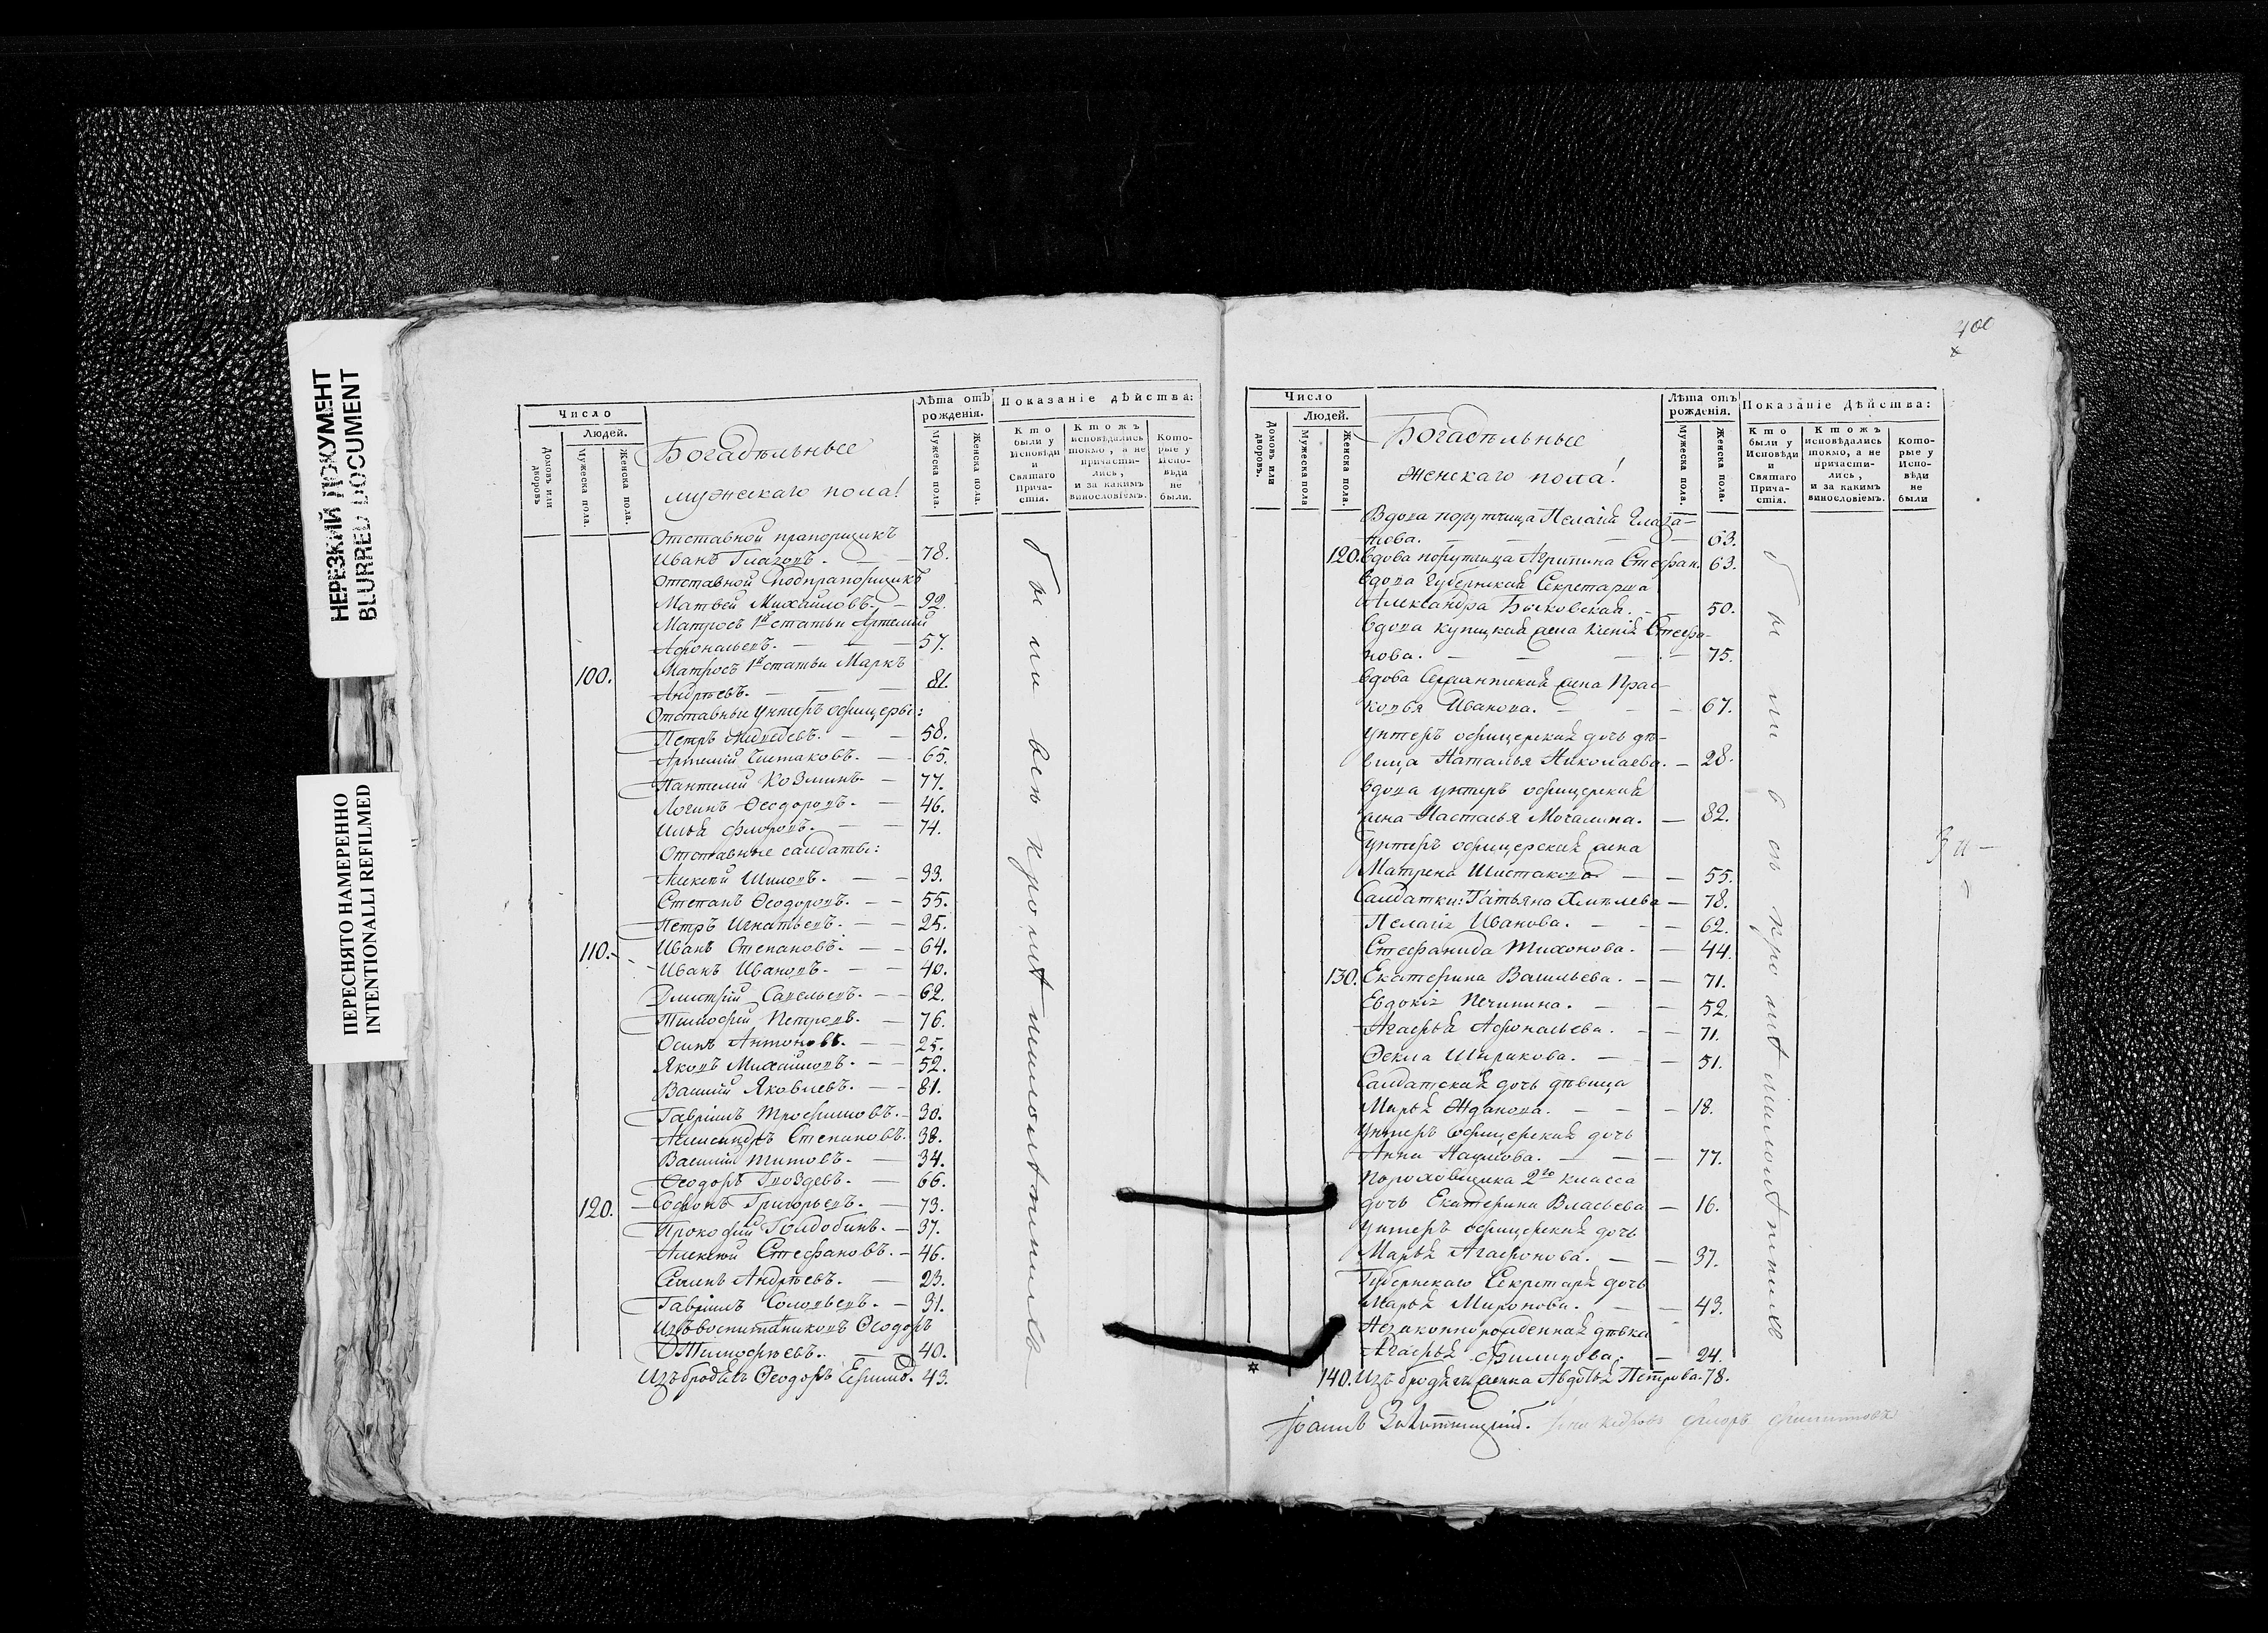 НЕРЕЗКИЙ ДОКУМЕНТ
BLURRED DOCUMENT
ПЕРЕСНЯТО НАМЕРЕННО
INTENTIONALLI REFILMED
Число
Людей.
Домовъ или дворовъ
Мужеска пола.
Женска пола.
Богадѣльные
мужескаго пола!
Лѣта отъ рожденія.
Мужеска пола.
Женска пола.
Показаніе дѣйства:
Кто были у Исповѣди и Святаго Прича-стія.
Ктожъ исповѣдались токмо, а не причасти-лись, и за какимъ винословіемъ.
Кото-рые у Испо-вѣди не были.
Отставной прапорщикъ
Иванъ Глазовъ. — 78.
Отставной подпрапорщикъ
Матвей Михайловъ. — 92.
Матросъ 1й статьи Артемий
Афонасьевъ. — 57.
100. Матросъ 1й статьи Маркъ
Андреевъ. — 81.
Отставные унтеръ офицеры:
Петръ — 58.
Артемий — 65.
Пантелей Козминъ — 77.
Логинъ Ѳеодоровъ. — 46.
Илья Флоровъ. — 74.
Отставные салдаты:
Алексѣй Шиловъ. — 33.
Степанъ Ѳеодоровъ. — 55.
Петръ Игнатьевъ. — 25.
110. Иванъ Степановъ. — 64.
Иванъ Ивановъ. — 40.
Дмитрий Савельевъ. — 62.
Тимофей Петровъ. — 76.
Осипъ Антоновъ. — 25.
Яковъ Михайловъ. — 52.
Василий Яковлевъ. — 81.
Гаврiилъ Трофимовъ. — 30.
Александръ Степановъ. 38.
Василий Титовъ. — 34.
Ѳеодоръ Гвоздевъ. — 66.
120. Софонъ Григорьевъ. — 73.
Прокофий Голдобинъ. — 37.
Алексѣй Стефановъ. — 46.
Семенъ Андреевъ. — 23.
Гаврiилъ Соловьевъ. — 31.
Изъ воспитаниковъ Ѳеодоръ
Тимофеевъ. — 40.
Изъ бродягъ Ѳеодоръ 43.
были все кромѣ
400
Число
Людей.
Домовъ или дворовъ.
Мужеска пола
Женска пола.
Богадѣльные
женскаго пола!
Лѣта отъ рожденія.
Мужеска пола.
Женска пола.
Показаніе Дѣйства:
Кто были у Исповѣди и Святаго Прича-стія.
Ктожъ исповѣдались токмо, а не причасти-лись, и за какимъ винословіемъ.
Кото-рые у Испо-вѣди не были
Вдова порутчица Пелагія
63.
120. Вдова порутчица Агрипина Стефан. 63.
Вдова Губернская Секретарша
Александра Быковская. — 50.
Вдова купецкая жена Ксенія Стефа-
нова. — 75.
Вдова Сержантская жена Прас-
ковья Иванова. — 67.
Унтеръ офицерская дочь дѣ-
вица Наталья Николаева. — 28.
Вдова унтеръ офицерская
жена Настасья Мочалина. — 82.
Унтеръ офицерская жена
Матрена Шистакова — 55.
Салдатки: Татьяна Хмелева — 78.
Пелагія Иванова. — 62.
Стефанида Тихонова. — 44.
130. Екатерина Васильева. — 71.
Евдокія Печинина. — 52.
Агафья Афонасьева. — 71.
Ѳекла Ширякова. — 51.
Салдатская дочь дѣвица
Марья Жданова. — 18.
Унтеръ Офицерская дочь
Анна Наумова. — 77.
Пороховщика 2го класса
дочь Екатерина Власьева — 16.
Унтеръ офицерская дочь
Марья Агафонова. — 37.
Губернскаго Секретаря дочь
Марья Миронова. — 43.
Незаконнорожденная дѣвка
Агафья Филипова. — 24.
140. Изъ бродягъ женка Авдотья Петрова. 78.
были всѣ кромѣ